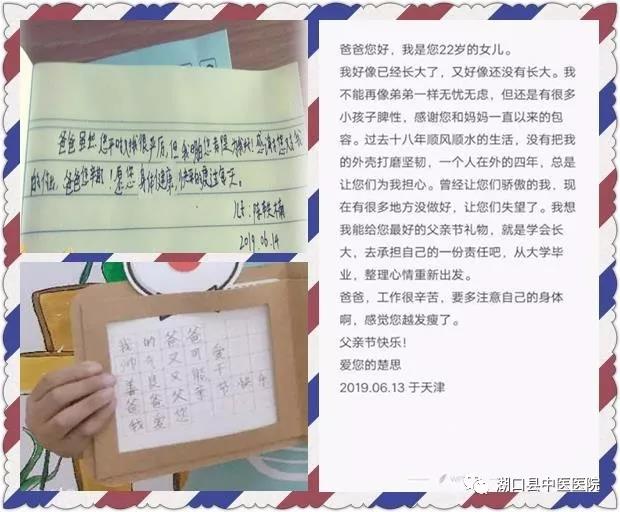 爸爸虽然,您平时对我很严厉,但我明白您希望我
的付出,爸爸您辛苦了!愿您身体健康,快乐的度过每天。
儿子:陈
2019.06.14
我的爸爸
帅又可爱
善又能干
爸爸父亲节快乐
我爱您
爸爸您好，我是您22岁的女儿。
我好像已经长大了，又好像还没有长大。我
不能再像弟弟一样无忧无虑，但还是有很多
小孩子脾性，感谢您和妈妈一直以来的包
容。过去十八年顺风顺水的生活，没有把我
的外壳打磨坚韧，一个人在外的四年，总是
让您们为我担心。曾经让您们骄傲的我，现
在有很多地方没做好，让您们失望了。我想
我能给您最好的父亲节礼物，就是学会长
大，去承担自己的一份责任吧，从大学毕
业，整理心情重新出发。
爸爸，工作很辛苦，要多注意自己的身体
啊，感觉您越发瘦了。
父亲节快乐！
爱您的楚思
2019.06.13 于天津
湖口县中医医院